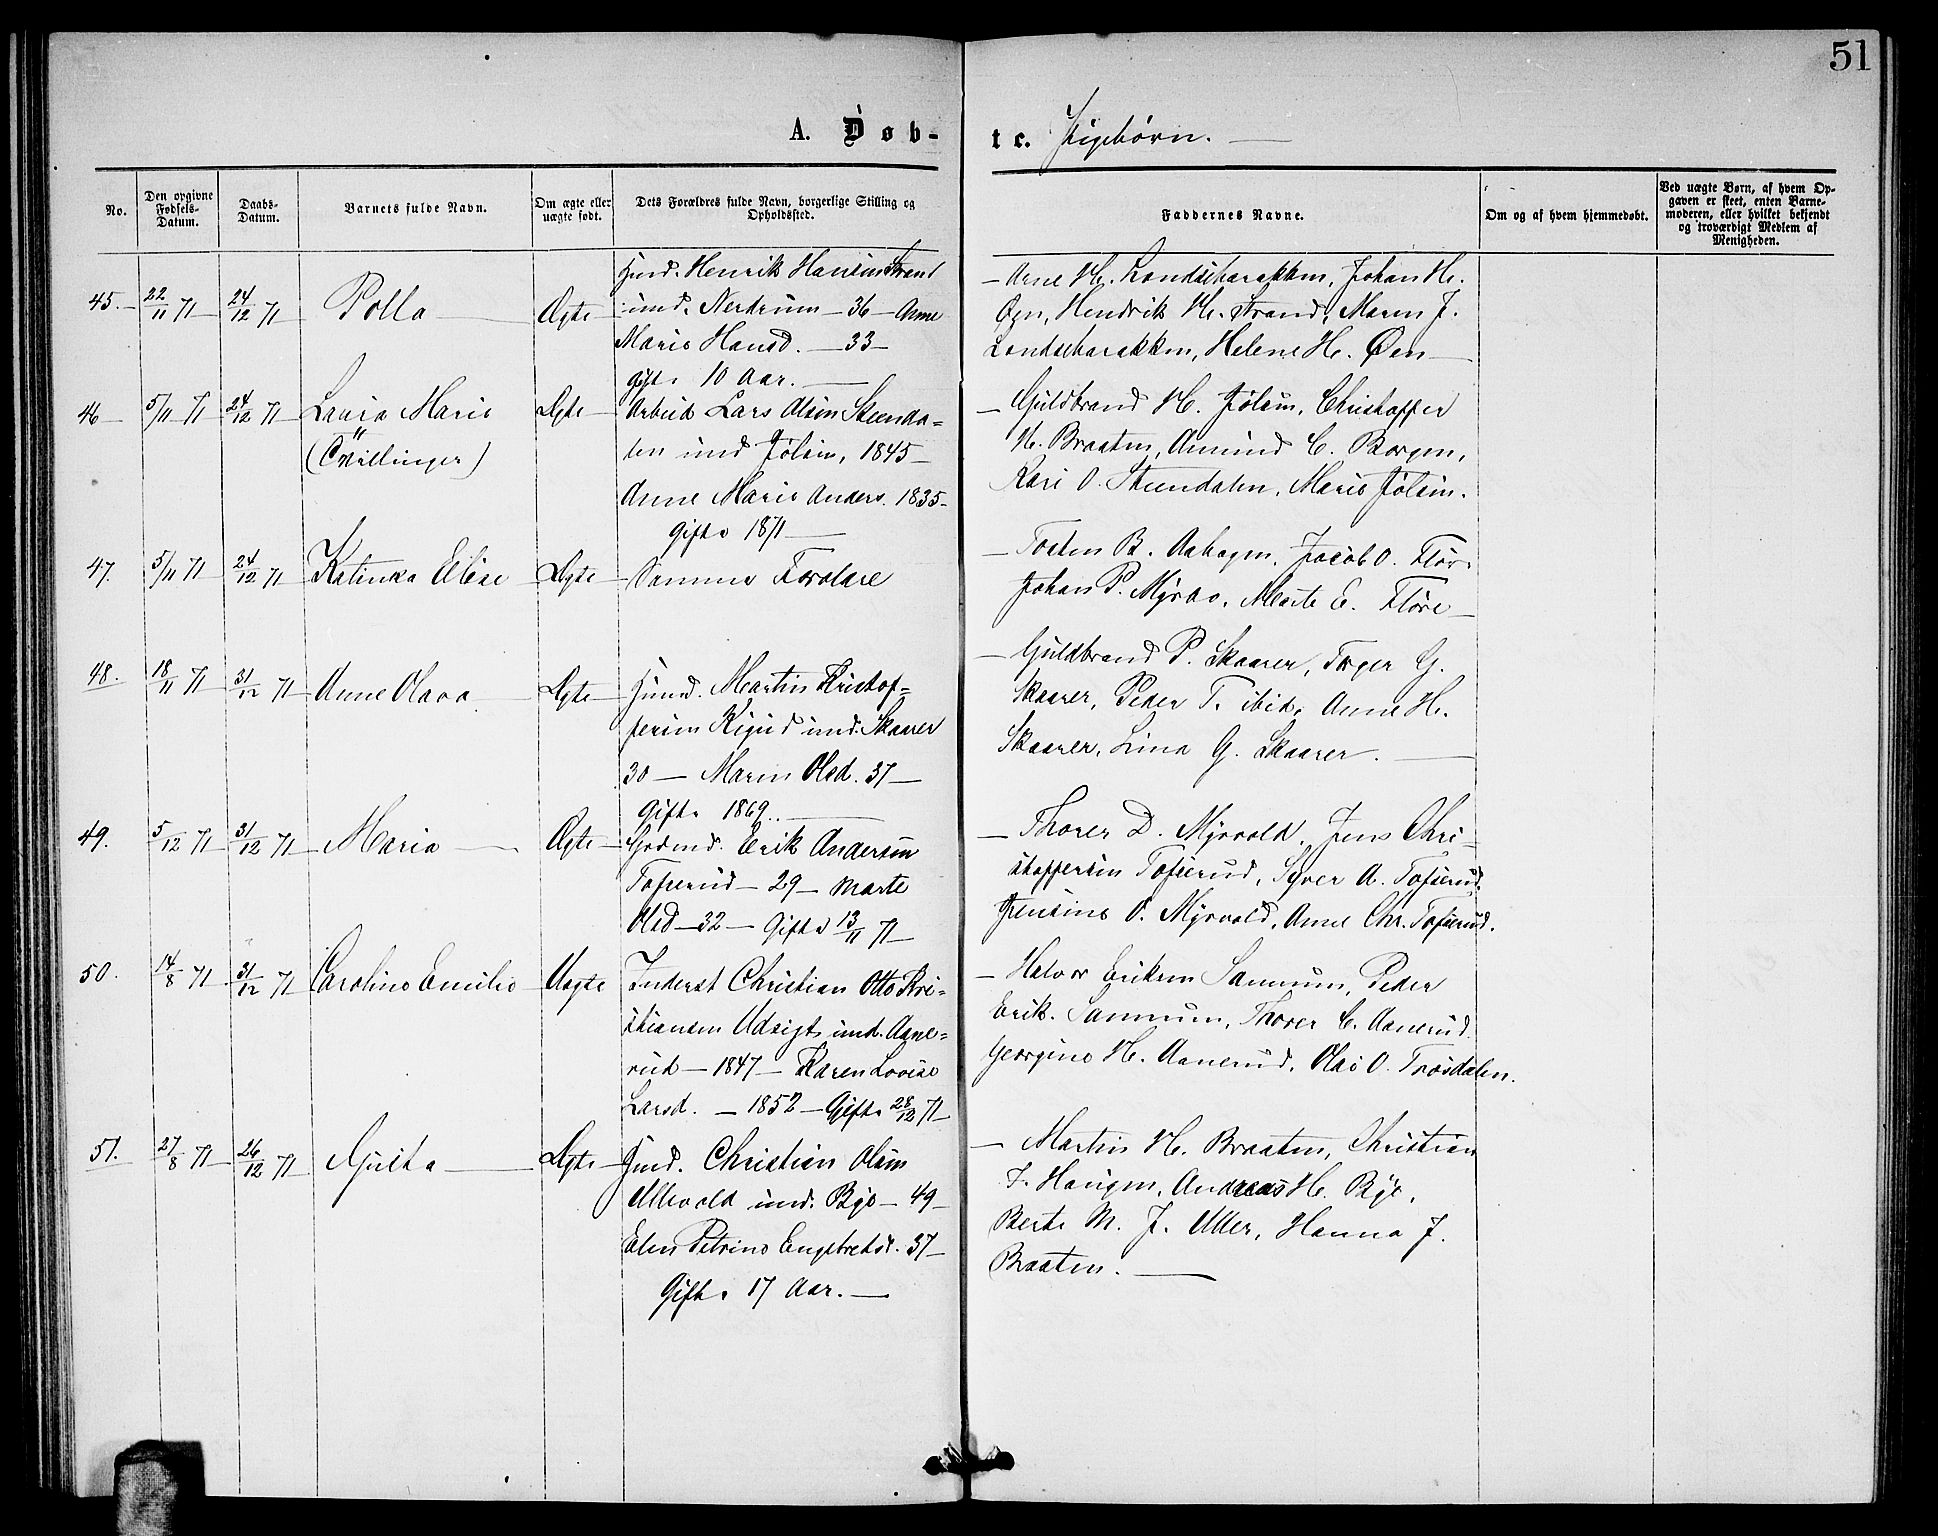 51
A. Døb-
te. Pigebørn.
No.
Den opgivne Fødsels-Datum.
Daabs-Datum.
Barnets fulde Navn.
Om ægte eller uægte født.
Dets Forældres fulde Navn, borgerlige Stilling og Opholdssted.
Faddernes Navne.
Om og af hvem hjemmedøbt.
Ved uægte Børn, af hvem Opgaven er skeet, enten Barnemoderen, eller hvilket bekjendt og troværdigt Medlem af Menigheden.
45. 22/11 71 24/12 71 Polla Ægte
Husmd. Henrik Hansen Strand
und. Nerdrum - 36 - Anne
Marie Hansd. - 33 -
Gift 10 Aar.
- Arne H. Londsebarakken, Johan H.
Øgn, Hendrik H. Strand, Maren J.
Londsebarakken, Helene H. Øen
46 5/11 71 24/12 71 Laura Marie
(Tvillinger)
Ægte
Arbeid Lars Olsen Steenda-
len und Jølsen, 1845 -
Anne Marie Anders. 1835 -
Gifte 1871
- Guldbrand H. Jølsen, Christoffer
H. Braaten, Amund C. Borgen,
Kari O. Steendalen, Marie Jølsen.
47. 5/11 71 24/12 71 Katinka Elise Ægte
Samme Forældre
- Tosten B. Aahagen, Jacob O. Flør.
Johan P. Myrbo, Marte E. Fløre
48. 18/11 71 31/12 71 Anne Olava Ægte
Husmd. Martin Kristof-
fersen Kigud und. Skaarer
30 - Maren Olsd. 37 -
Gifte 1869.
- Guldbrand P. Skaarer, Torger G.
Skaarer, Peder T. ibid, Anne H.
Skaarer, Lina G. Skaarer.
49. 5/12 71 31/12 71 Maria Ægte
Gaardmd. Erik Andersen
Tofserud - 29 - Marte
Olsd - 32 - Gifte 13/11 71
- Thorer D. Myrvold, Jens Chri-
stoffersen Tofserud, Syver A. Tofserud
Jensine O. Myrvold, Anne Chr. Tofserud.
50. 14/8 71 31/12 71 Caroline Emilie Uægte
Inderst Christian Otto Kri-
stiansen Udsigt und. Aane-
rud - 1847 - Karen Lovise
Larsd. - 1852 - Gifte 28/12 71
- Halvor Eriksen Sannum, Peder
Erik. Sannum, Thorer C. Aanerud.
Georgine H. Aanerud, Olas O. Trosdalen.
51. 27/8 71 26/12 71 Gusta Ægte
Husmd. Christian Olsen
Ullevold und. Bye - 49 -
Elen Petrine Engebretsd. 37 -
Gifte 17 Aar.
- Martin H. Braaten, Christian
J. Haugen, Andreas H. Bye,
Berte M. J. Uller, Hanna J.
Braaten.